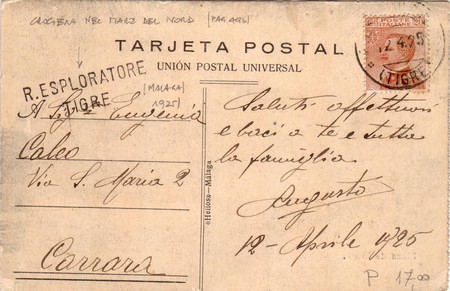 CROCIERA NEL MARE DEL NORD (PAR. 496)
TARJETA POSTAL
UNIÓN POSTAL UNIVERSAL
POSTE ITALIANE
12.4.25
(TIGRE)
R. ESPLORATORE
TIGRE
(MALAGA)
1925)
A Eugenia
Caleo
Via S. Maria 2
Carrara
«Heliosa»-Málaga
Saluti affettuosi
e baci a te e tutta
la famiglia
Augusto
12 - Aprile 1925
P 17,00